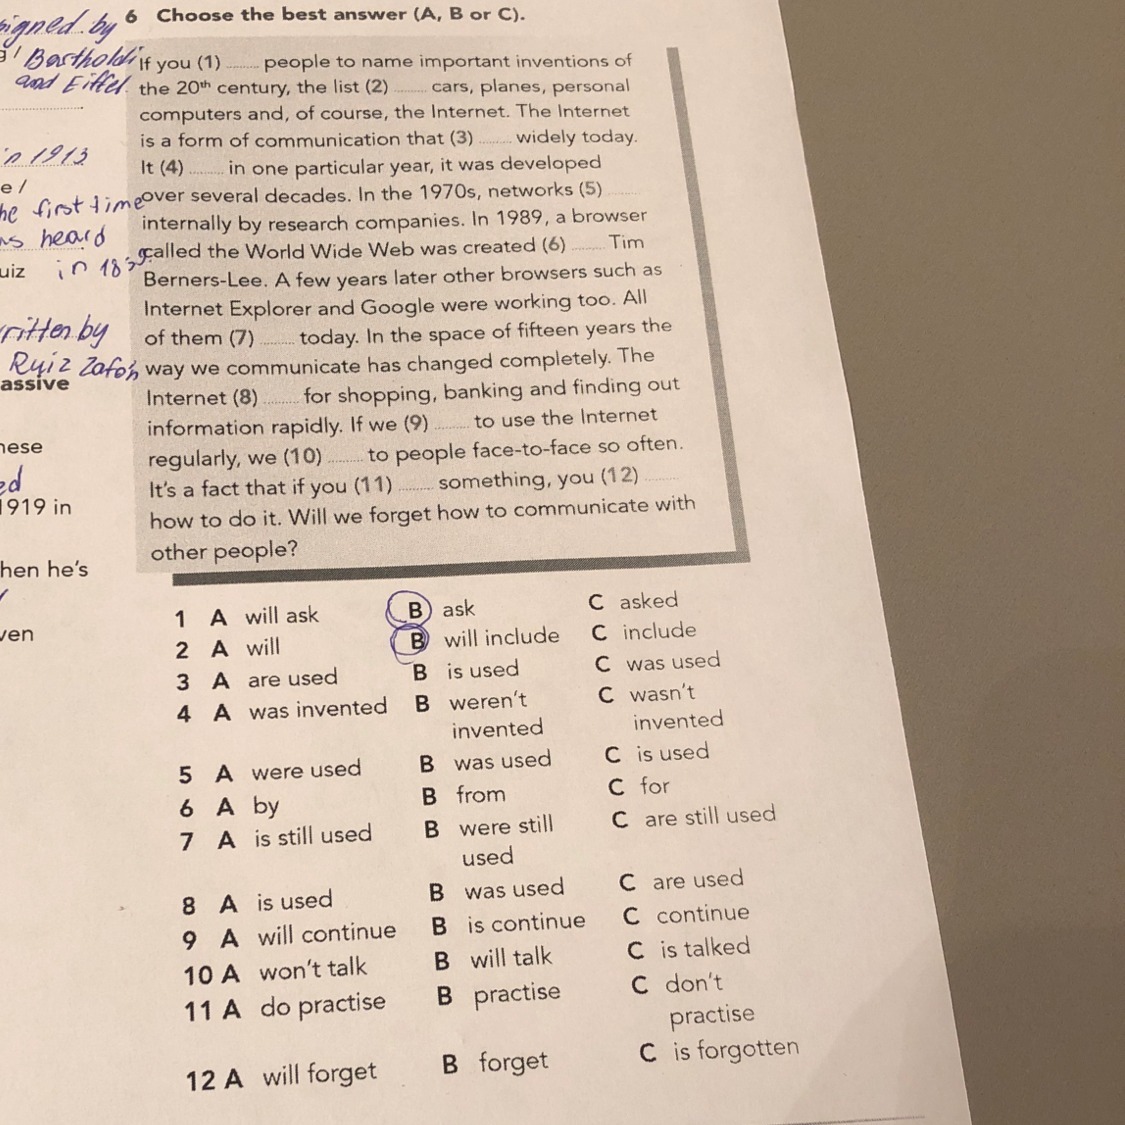 signed by
Bartholdi
and Eiffel
in 1913
e /
he first time
as heard
uiz in 183
written by
Ruiz Zafón
assive
nese
ed
1919 in
hen he's
ven
6 Choose the best answer (A, B or C).
If you (1) ........ people to name important inventions of
the 20th century, the list (2) ........ cars, planes, personal
computers and, of course, the Internet. The Internet
is a form of communication that (3) ........ widely today.
It (4) ........ in one particular year, it was developed
over several decades. In the 1970s, networks (5) ........
internally by research companies. In 1989, a browser
called the World Wide Web was created (6) ........ Tim
Berners-Lee. A few years later other browsers such as
Internet Explorer and Google were working too. All
of them (7) ........ today. In the space of fifteen years the
way we communicate has changed completely. The
Internet (8) ........ for shopping, banking and finding out
information rapidly. If we (9) ........ to use the Internet
regularly, we (10) ........ to people face-to-face so often.
It's a fact that if you (11) ........ something, you (12) ........
how to do it. Will we forget how to communicate with
other people?
1 A will ask B ask C asked
2 A will B will include C include
3 A are used B is used C was used
4 A was invented B weren't C wasn't
invented invented
5 A were used B was used C is used
6 A by B from C for
7 A is still used B were still C are still used
used
8 A is used B was used C are used
9 A will continue B is continue C continue
10 A won't talk B will talk C is talked
11 A do practise B practise C don't
practise
12 A will forget B forget C is forgotten